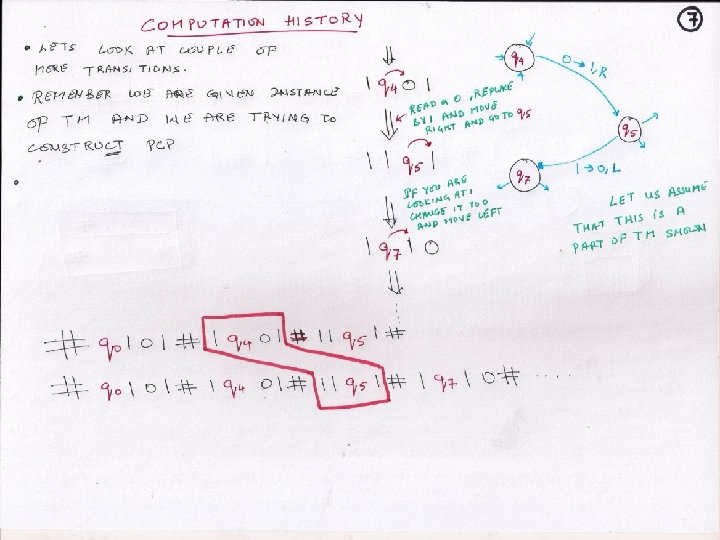 COMPUTATION HISTORY
7
• LETS LOOK AT COUPLE OF
MORE TRANSITIONS.
• REMEMBER WE ARE GIVEN INSTANCE
OF TM AND WE ARE TRYING TO
CONSTRUCT PCP
•
⇓
1 q4 0 1
⇓ READ a 0, REPLACE
BY 1 AND MOVE
RIGHT AND GO TO q5
1 1 q5 1
⇓ IF YOU ARE
LOOKING AT 1
CHANGE IT TO 0
AND MOVE LEFT
1 q7 1 0
⇓
q4
0 → 1, R
q5
1 → 0, L
q7
LET US ASSUME
THAT THIS IS A
PART OF TM SHOWN
# q0 1 0 1 # 1 q4 0 1 # 1 1 q5 1 #
# q0 1 0 1 # 1 q4 0 1 # 1 1 q5 1 # 1 q7 1 0 # .....